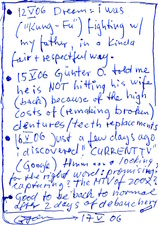 12 V 06 Dream: i was
("Kung-Fu") fighting w/
my father, in a kinda
fair + respectful way.
15 V 06 Günter O. told me
he is NOT hitting his wife
(back) because of the high
costs of (remaking broken)
dentures/teeth replacements
16 V 06 just a few days ago
i discovered "CURRENT TV"
(Google) Hmm... looking
for the right word: promising?
capturing? the MTV of 2002?
Good to be back to normal
after 2 days of debauchery
17 V 06